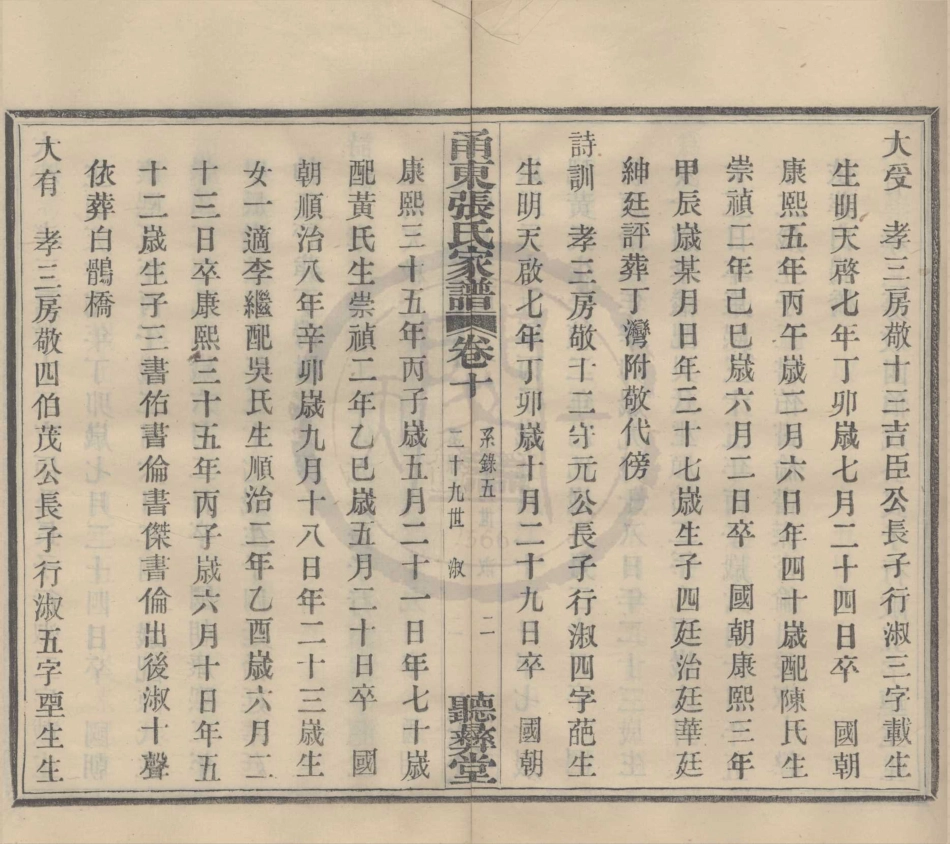 大受　孝三房敬十三吉臣公長子行淑三字載生
生明天啓七年丁卯歲七月二十四日卒　國朝
康熙五年丙午歲二月六日年四十歲配陳氏生
崇禎二年己巳歲六月二日卒　國朝康熙三年
甲辰歲某月日年三十七歲生子四廷治廷華廷
紳廷評葬丁灣附敬代傍
詩訓　孝三房敬十二守元公長子行淑四字葩生
生明天啟七年丁卯歲十月二十九日卒　國朝
甬東張氏家譜　卷十　系錄五　二十九世　淑　二　聽彝堂
康熙三十五年丙子歲五月二十一日年七十歲
配黃氏生崇禎二年乙巳歲五月二十日卒　國
朝順治八年辛卯歲九月十八日年二十三歲生
女一適李繼配吳氏生順治二年乙酉歲六月二
十三日卒康熙三十五年丙子歲六月十日年五
十二歲生子三書佑書倫書傑書倫出後淑十聲
依葬白鶴橋
大有　孝三房敬四伯茂公長子行淑五字堙生生